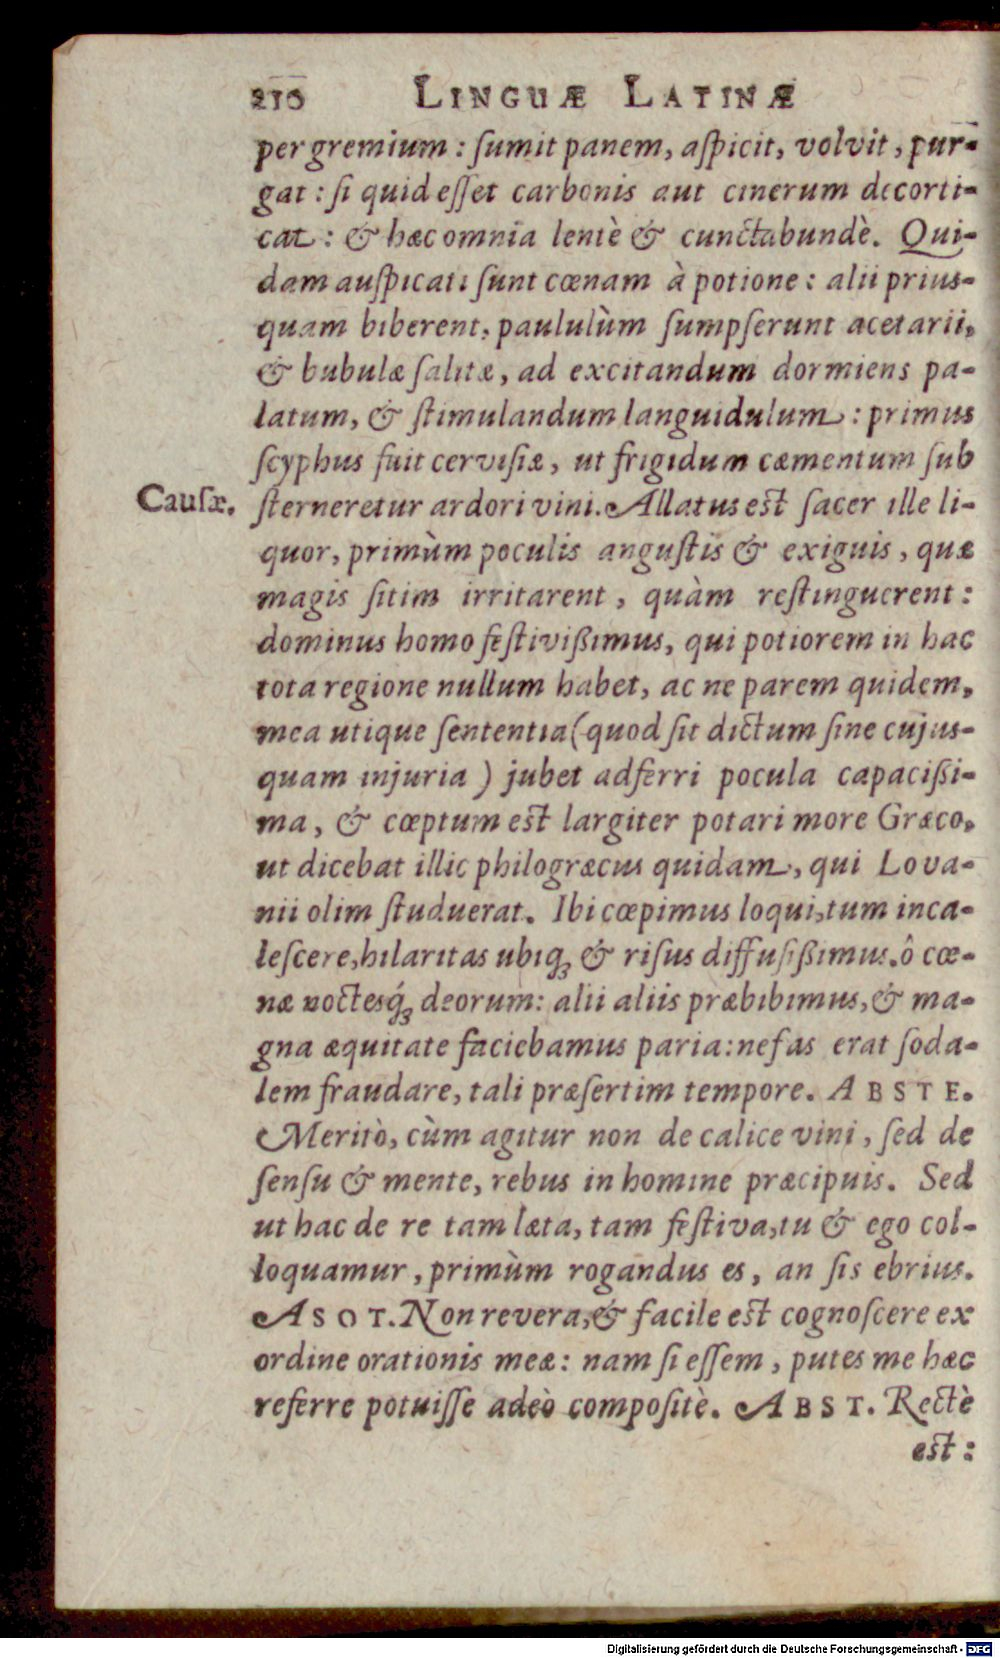 210 LINGUÆ LATINÆ
per gremium : ſumit panem, aſpicit, volvit, pur-
gat : ſi quid eſſet carbonis aut cinerum decorti-
cat : & hæc omnia lentè & cunctabundè. Qui-
dam auſpicati ſunt cœnam à potione : alii prius-
quam biberent, paululùm ſumpſerunt acetarii,
& bubulæ ſalitæ, ad excitandum dormiens pa-
latum, & ſtimulandum languidulum : primus
ſcyphus fuit cerviſiæ, ut frigidum cæmentum ſub
Cauſæ. ſterneretur ardori vini. Allatus eſt ſacer ille li-
quor, primùm poculis anguſtis & exiguis, quæ
magis ſitim irritarent, quàm reſtinguerent :
dominus homo feſtivißimus, qui potiorem in hac
tota regione nullum habet, ac ne parem quidem,
mea utique ſententia (quod ſit dictum ſine cujus-
quam injuria ) jubet adferri pocula capacißi-
ma, & cœptum eſt largiter potari more Græco,
ut dicebat illic philogræcus quidam, qui Lova-
nii olim ſtuduerat. Ibi cœpimus loqui, tum inca-
leſcere, hilaritas ubiq́ꝫ & riſus diffuſißimus. ô cœ-
næ noctesq́ꝫ deorum : alii aliis præbibimus, & ma-
gna æquitate faciebamus paria : nefas erat ſoda-
lem fraudare, tali præſertim tempore. ABSTE.
Meritò, cùm agitur non de calice vini, ſed de
ſenſu & mente, rebus in homine præcipuis. Sed
ut hac de re tam læta, tam feſtiva, tu & ego col-
loquamur, primùm rogandus es, an ſis ebrius.
ASOT. Non revera, & facile eſt cognoſcere ex
ordine orationis meæ : nam ſi eſſem, putes me hæc
referre potuiſſe adeò compoſitè. ABST. Rectè
eſt :
Digitalisierung gefördert durch die Deutsche Forschungsgemeinschaft - DFG